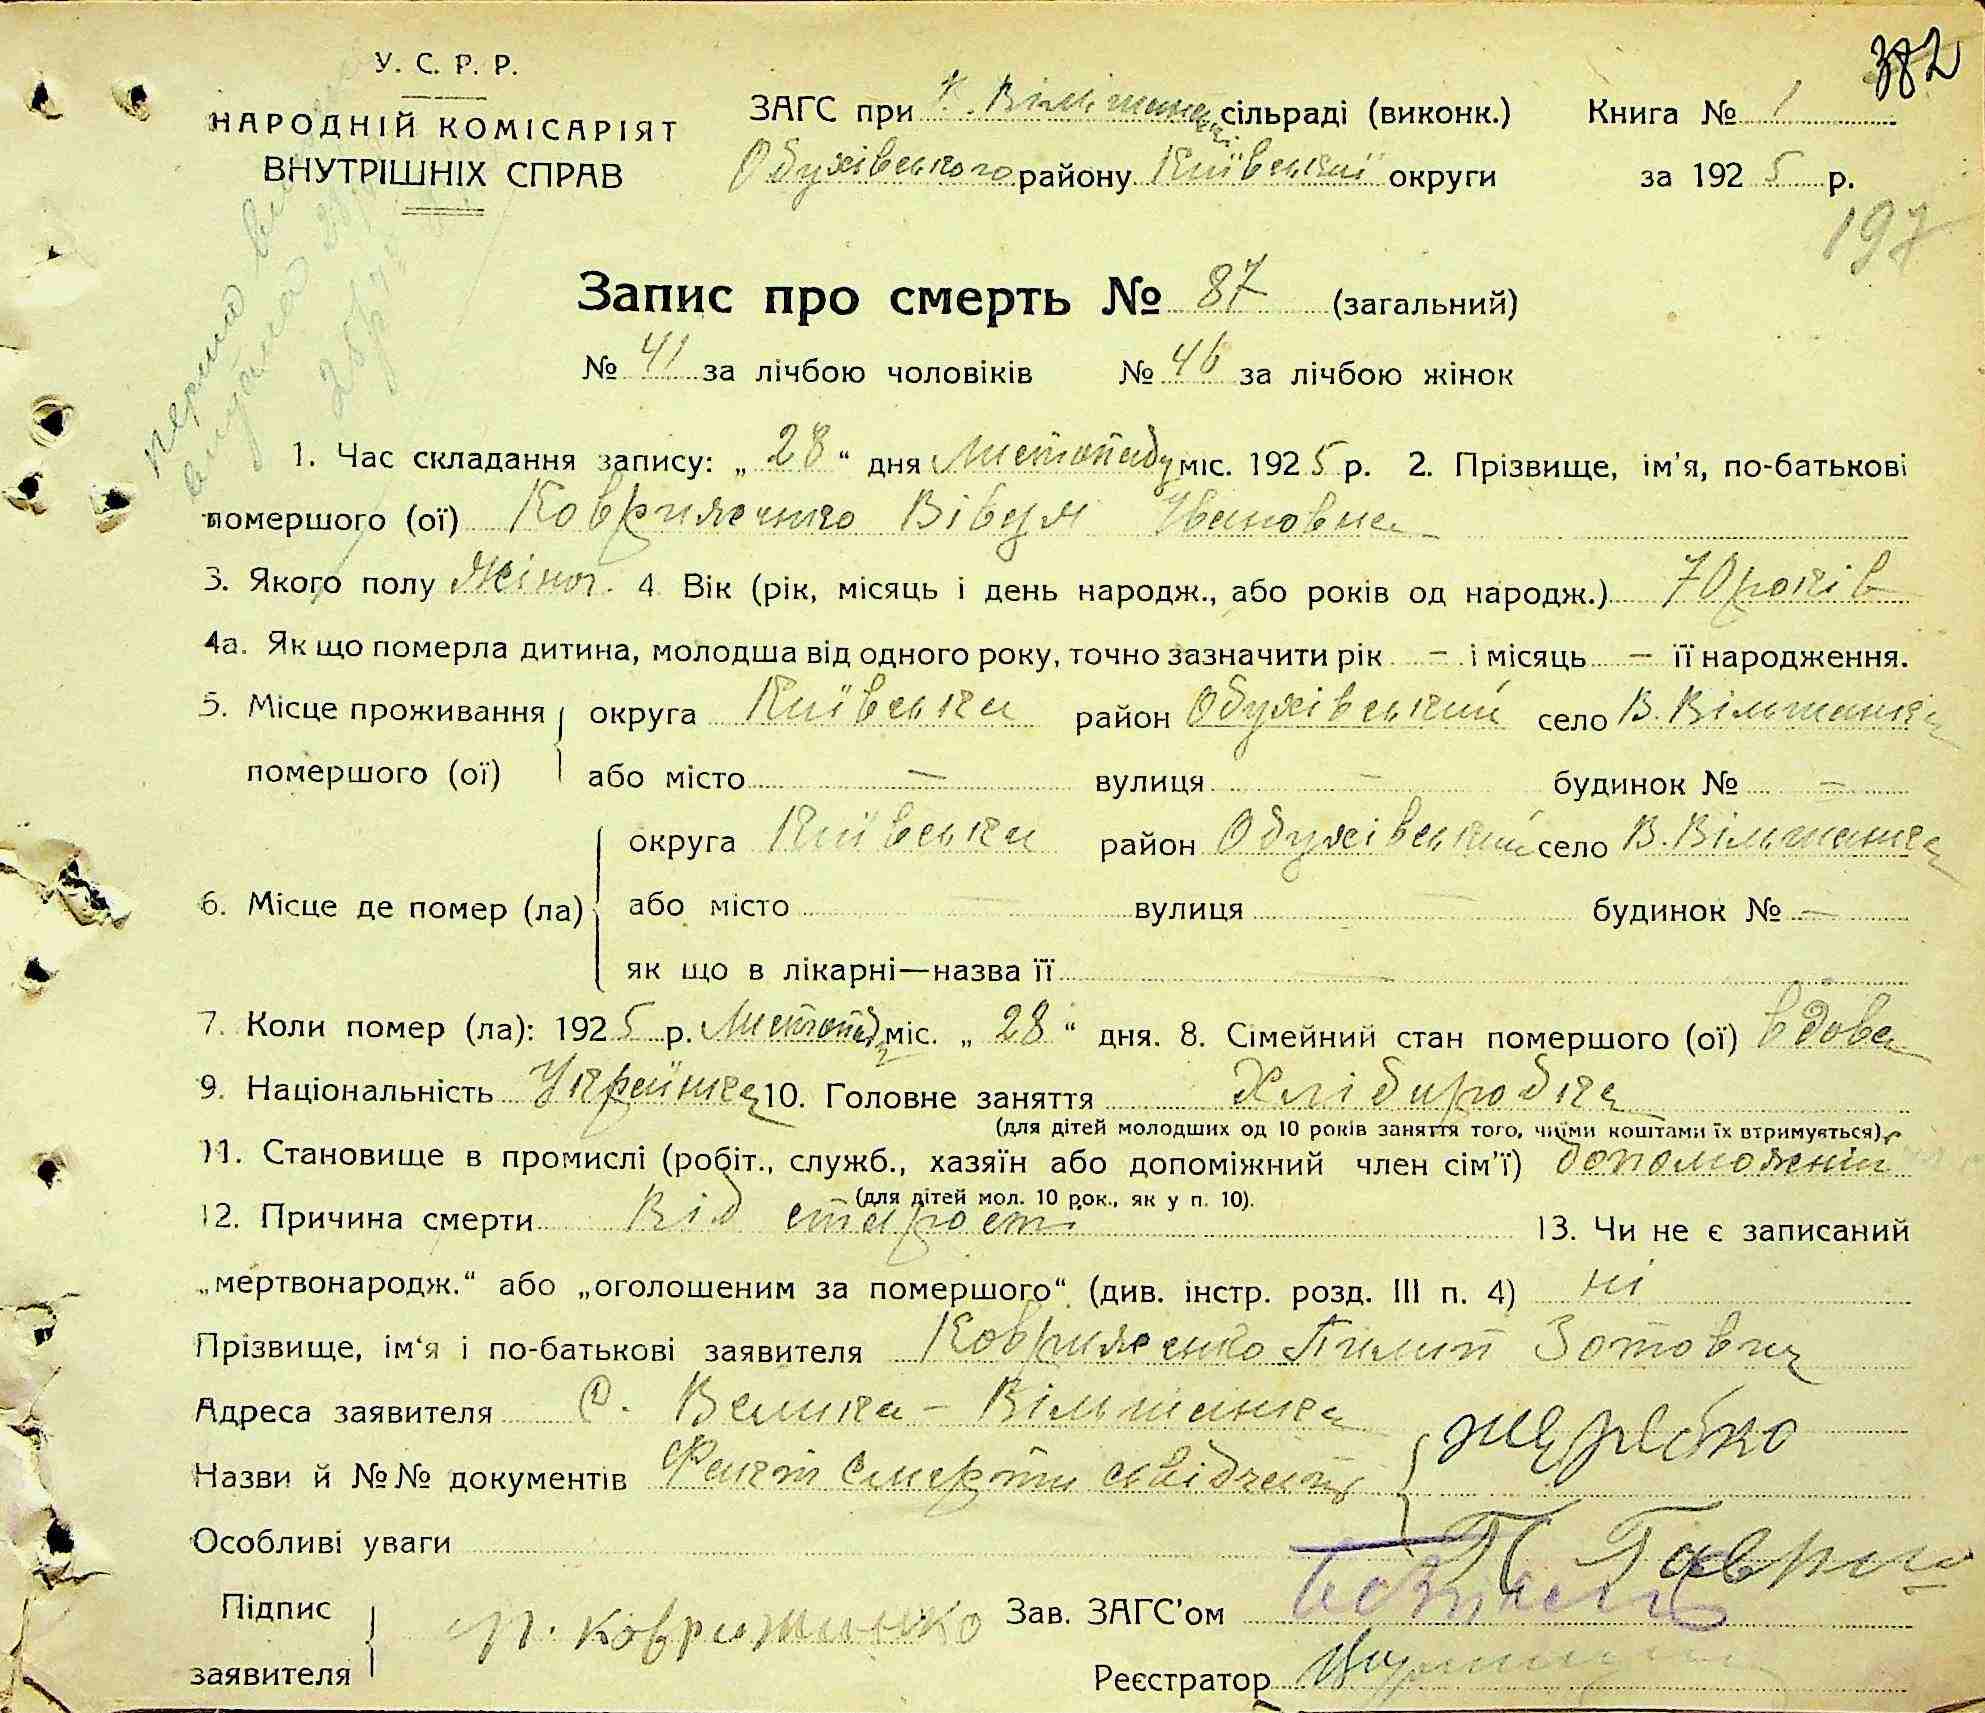 382
У. С. Р. Р.
НАРОДНІЙ КОМІСАРІЯТ
ВНУТРІШНІХ СПРАВ
ЗАГС при В. Вільшанській сільраді (виконк.) Книга № 1
Обухівського району Київської округи за 1925 р.
197
Запис про смерть № 87 (загальний)
№ 41 за лічбою чоловіків № 46 за лічбою жінок
1. Час складання запису: „ 28 “ дня Листопаду міс. 1925 р. 2. Прізвище, ім'я, по-батькові
помершого (ої) Ковриженко Івановна
3. Якого полу Жіноч. 4. Вік (рік, місяць і день народж., або років од народж.) 70 років
4а. Як що померла дитина, молодша від одного року, точно зазначити рік – і місяць – її народження.
5. Місце проживання помершого (ої) округа Київська район Обухівський село В. Вільшанка
або місто — вулиця — будинок № —
6. Місце де помер (ла) округа Київська район Обухівський село В. Вільшанка
або місто — вулиця — будинок № —
як що в лікарні—назва її —
7. Коли помер (ла): 1925 р. Листопаду міс. „ 28 “ дня. 8. Сімейний стан помершого (ої) вдова
9. Національність Українка 10. Головне заняття Хліборобка
(для дітей молодших од 10 років заняття того, чиїми коштами їх втримується)
11. Становище в промислі (робіт., служб., хазяїн або допоміжний член сім'ї) допоможній
(для дітей мол. 10 рок., як у п. 10).
12. Причина смерти Від старости 13. Чи не є записаний
„мертвонародж.“ або „оголошеним за помершого“ (див. інстр. розд. III п. 4) ні
Прізвище, ім'я і по-батькові заявителя Ковриженко Пилип Зотович
Адреса заявителя С. Велика-Вільшанка
Назви й №№ документів Факт смерти свідчать
Особливі уваги
Підпис заявителя П. Ковриженко Зав. ЗАГС'ом
Реєстратор